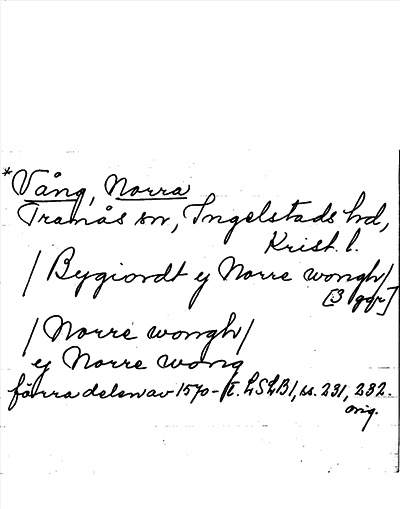 *Vång, Norra
Tranås sn, Ingelstads hd,
Krist. l.
/ Bygiordt ej Norre wongh/
[3 ggr]
/ Norre wongh/
ej Norre wong
förra delen av 1570-t. LSLB1, ss. 231, 232.
orig.